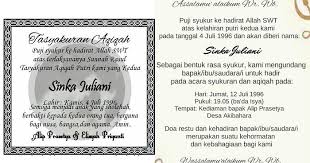 Tasyakuran Aqiqah
Puji syukur ke hadirat Allah SWT
atas terlaksananya Sunnah Rasul
Tasyakuran Aqiqah Putri kami yang Kedua
Sinka Juliani
Lahir: Kamis, 4 Juli 1996
Semoga menjadi anak yang sholehah,
berbakti kepada kedua orang tua, berguna
bagi nusa, bangsa dan agama. Amin.
Alip Prasetyo &
Assalamu'alaikum Wr. Wb.
Puji syukur ke hadirat Allah SWT
atas kelahiran putri kedua kami
pada tanggal 4 Juli 1996 dan akan diberi nama:
Sinka Juliani
Sebagai bentuk rasa syukur, kami mengundang
bapak/ibu/saudara/i untuk hadir
pada acara syukuran dan aqiqah pada:
Hari: Jumat, 12 Juli 1996
Pukul: 19.05 (ba'da Isya)
Tempat: Kediaman bapak Alip Prasetyo
Desa Akibahara
Doa restu dan kehadiran bapak/ibu/saudara/i
merupakan suatu kehormatan
dan kebahagiaan bagi kami.
Wassalamu'alaikum Wr. Wb.